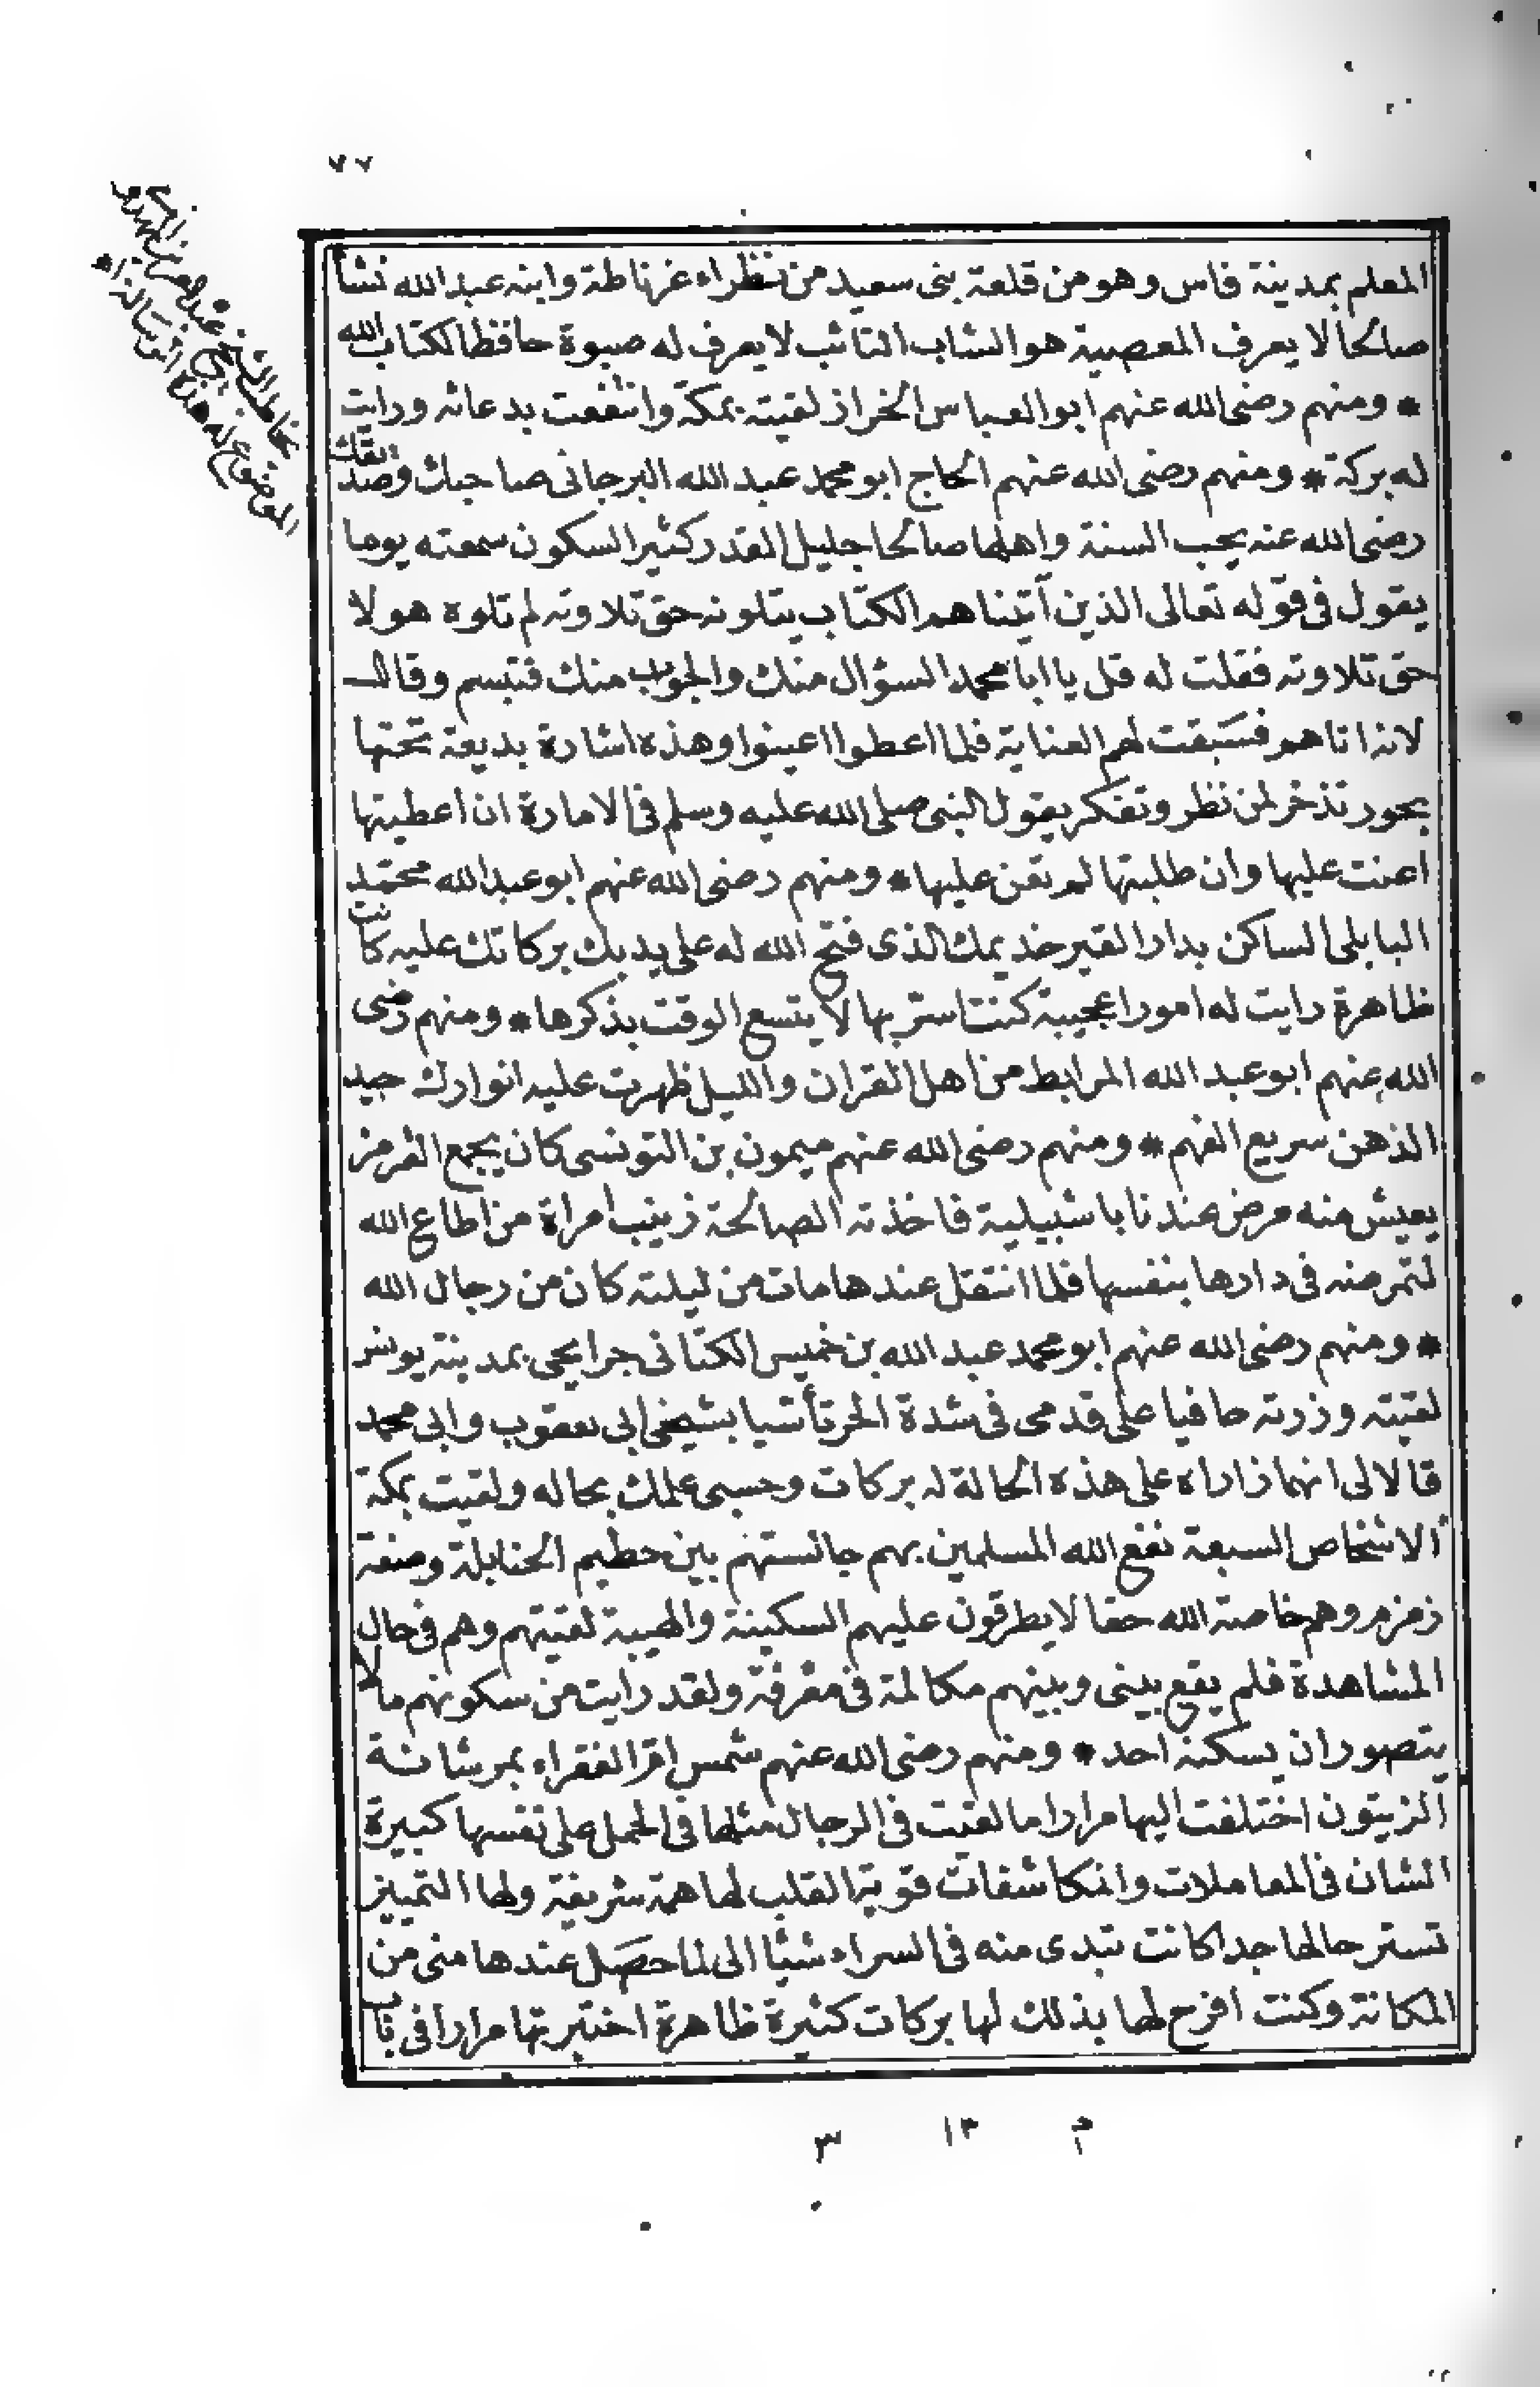 ٧٧
يخاطب الشيخ عبد العزيز المهدوى
الموضوع له هذه الرسالة اه
المعلم بمدينة فاس وهو من قلعة بنى سعيد من نظراء غرناطة وابنه عبد الله نشأ
صالحا لا يعرف المعصية هو الشاب التائب لا يعرف له صبوة حافظا لكتاب الله
* ومنهم رضى الله عنهم ابو العباس الخراز لقيته بمكة وانتفعت بدعائه ورايت
له بركة * ومنهم رضى الله عنهم الحاج ابو محمد عبد الله البرجانى صاحبك وصديقك
رضى الله عنه يحب السنة واهلها صالحا جليل القدر كثير السكون سمعته يوما
يقول فى قوله تعالى الذين آتيناهم الكتاب يتلونه حق تلاوته لم تلوه هولا
حق تلاوته فقلت له قل يا ابا محمد السؤال منك والجواب منك فتبسم وقال
لانه اتاهم فسبقت لهم العناية فلما اعطوا اعينوا وهذه اشارة بديعة تحتها
بحور تذخر لمن نظر وتفكر يقول النبى صلى الله عليه وسلم فى الامارة ان اعطيتها
اعنت عليها وان طلبتها لم تعن عليها * ومنهم رضى الله عنهم ابو عبد الله محمد
البابلى الساكن بدار القبر خديمك الذى فتح الله له على يديك بركاتك عليه كانت
ظاهرة رايت له امورا عجيبة كنت استر بها لا يتسع الوقت بذكرها * ومنهم رضى
الله عنهم ابو عبد الله المرابط من اهل القران والليل ظهرت عليه انوارك جيد
الذهن سريع الفهم * ومنهم رضى الله عنهم ميمون بن التونسى كان يجمع القرمز
يعيش منه مرض عندنا باشبيلية فاخذته الصالحة زينب امراة من اطاع الله
لتمرضه فى دارها بنفسها فلما انتقل عندها مات من ليلته كان من رجال الله
* ومنهم رضى الله عنهم ابو محمد عبد الله بن خميس الكتانى جرايحى بمدينة يونس
لقيته وزرته حافيا على قدمى فى شدة الحر تأسيا بشيخى ابى يعقوب وابى محمد
قالا لى انهما زاراه على هذه الحالة له بركات وحسبى علمك بحاله ولقيت بمكة
الاشخاص السبعة نفع الله المسلمين بهم جالستهم بين حطيم الحنابلة وصفة
زمزم وهم خاصة الله حقا لا يطرقون عليهم السكينة والهيبة لقيتهم وهم فى حال
المشاهدة فلم يقع بينى وبينهم مكالمة فى معرفة ولقد رايت من سكونهم ما لا
يتصور ان يسكنه احد * ومنهم رضى الله عنهم شمس ام الفقراء بمرشانة
الزيتون اختلفت اليها مرارا ما لقيت فى الرجال مثلها فى الحمل على نفسها كبيرة
الشان فى المعاملات والمكاشفات قوية القلب لها همة شريفة ولها التمييز
تستر حالها جدا كانت تبدى منه فى السراء شيئا الى لما حصل عندها منى من
المكانة وكنت افرح لها بذلك لها بركات كثيرة ظاهرة اختبرتها مرارا فى باب
م ١
١٣
٣